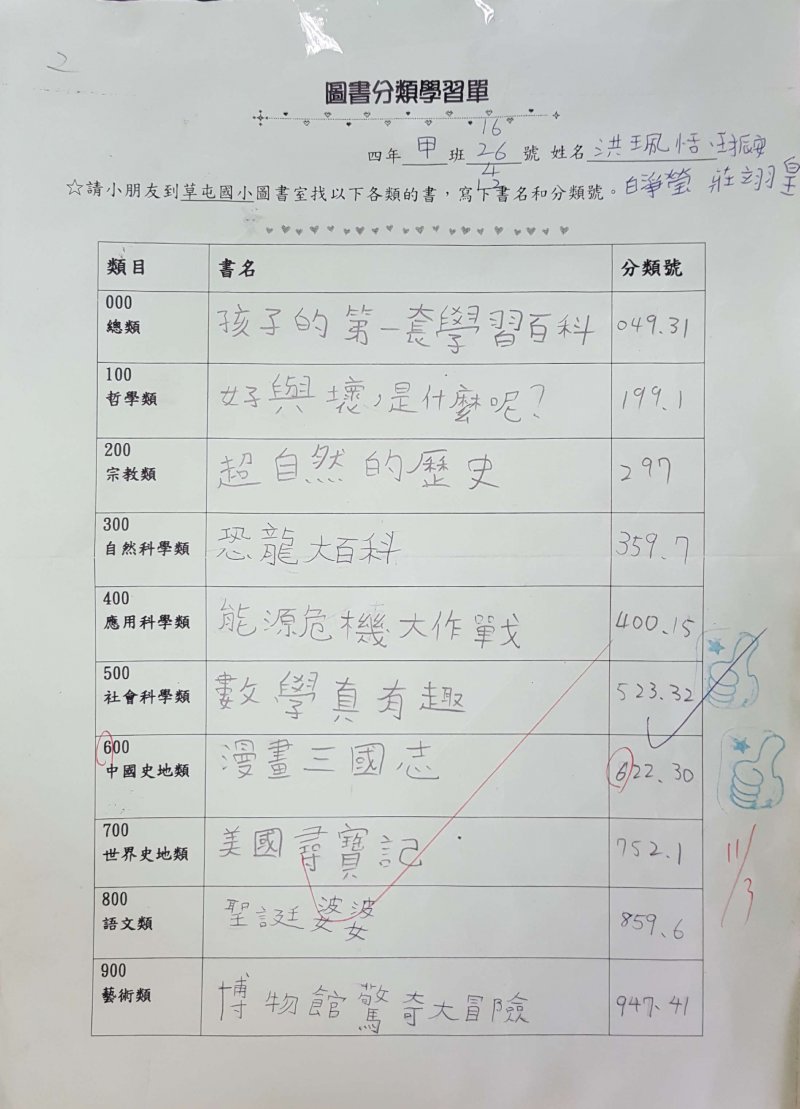 2
圖書分類學習單
16
四年 甲 班 26 號 姓名 洪珮恬、
4
12
☆請小朋友到草屯國小圖書室找以下各類的書,寫下書名和分類號。 白淨瑩 莊翊皇
類目 書名 分類號
000
總類 孩子的第一套學習百科 049.31
100
哲學類 好與壞,是什麼呢? 199.1
200
宗教類 超自然的歷史 297
300
自然科學類 恐龍大百科 359.7
400
應用科學類 能源危機大作戰 400.15
500
社會科學類 數學真有趣 523.32
600
中國史地類 漫畫三國志 622.30
700
世界史地類 美國尋寶記 752.1
11/3
800
語文類 聖誕婆婆 859.6
900
藝術類 博物館驚奇大冒險 947.41